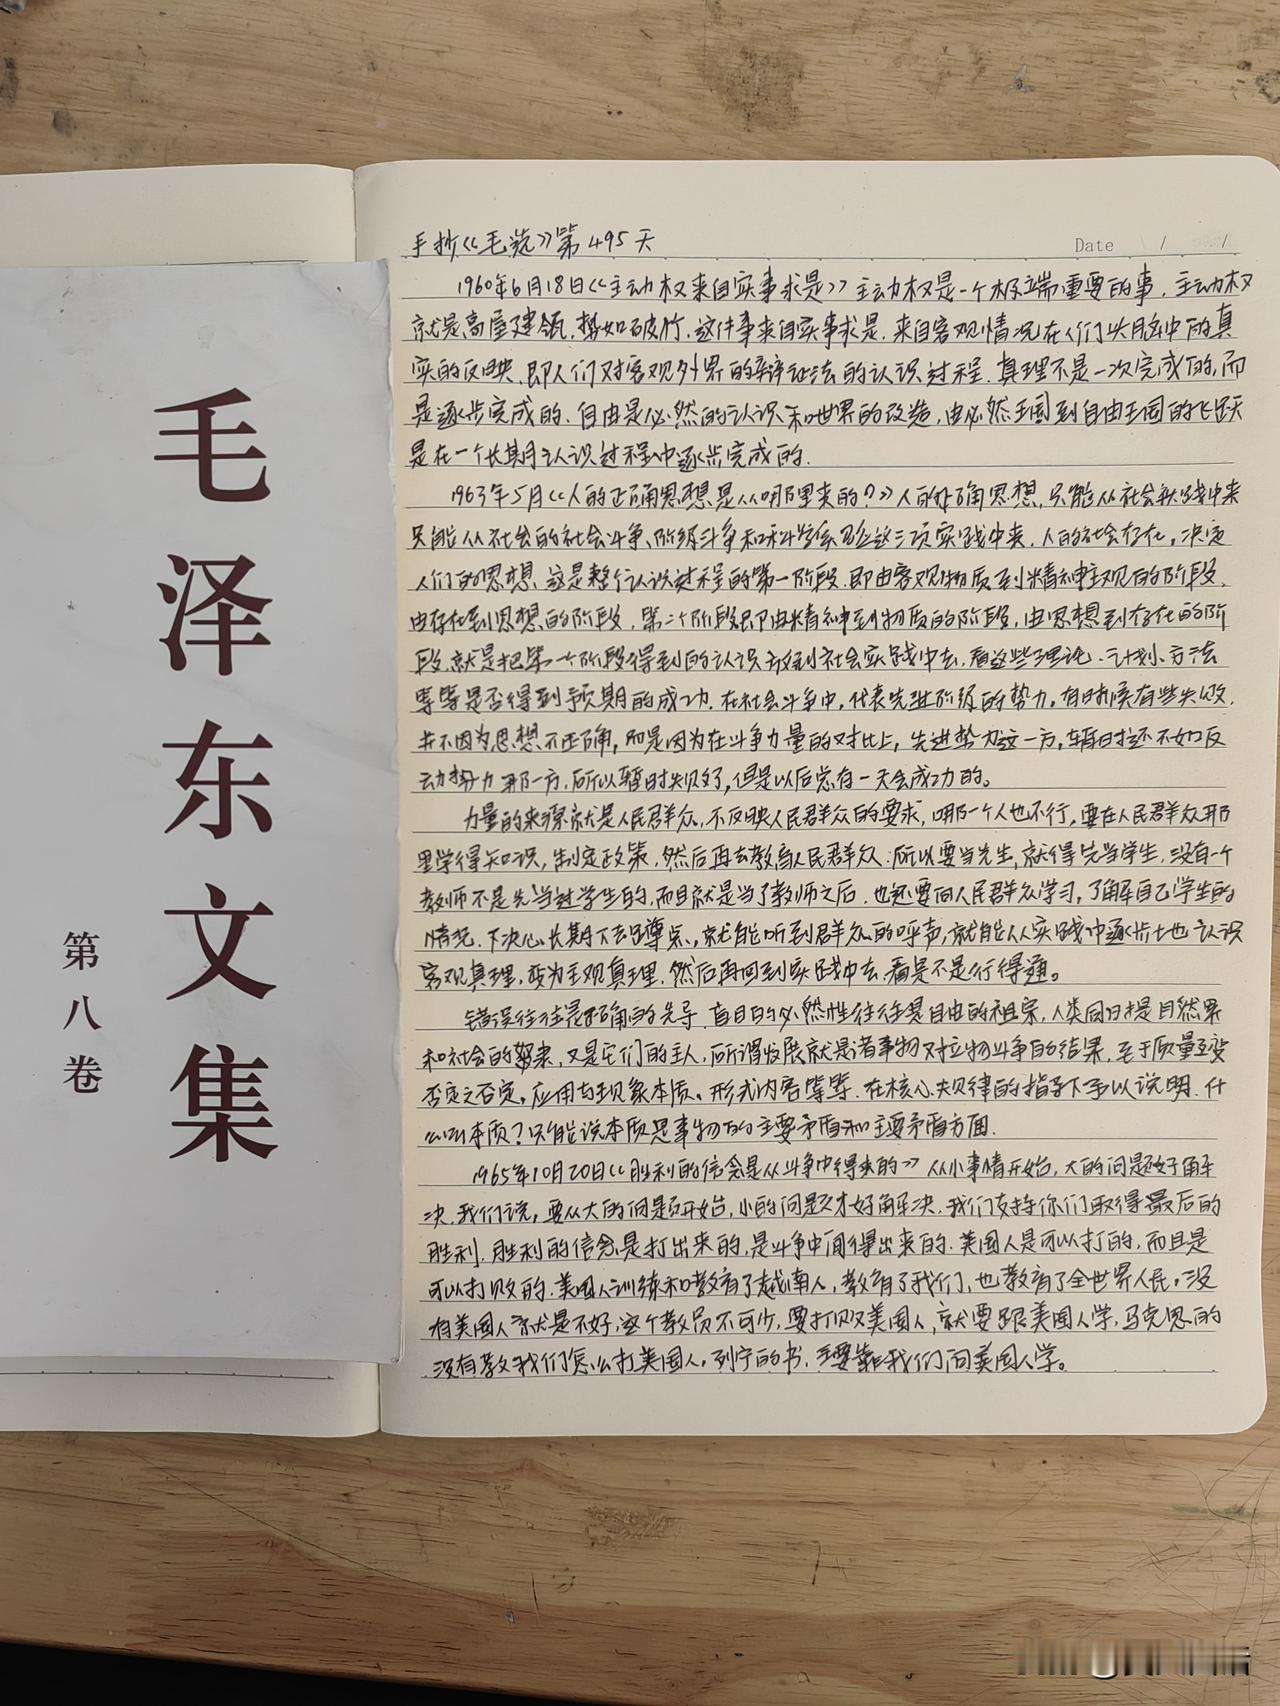 毛泽东文集
第八卷
手抄《毛选》第495天
Date / /
1960年6月18日《主动权来自实事求是》主动权是一个极端重要的事,主动权
就是高屋建瓴,势如破竹.这件事来自实事求是,来自客观情况在人们头脑中的真
实的反映.即人们对客观外界的辩证法的认识过程.真理不是一次完成的,而
是逐步完成的.自由是必然的认识和世界的改造,由必然王国到自由王国的飞跃
是在一个长期认识过程中逐步完成的.
1963年5月《人的正确思想是从哪里来的?》人的正确思想,只能从社会实践中来
只能从社会的社会斗争、阶级斗争和科学实验这三项实践中来.人的社会存在,决定
人们的思想.这是整个认识过程的第一阶段.即由客观物质到精神主观的阶段.
由存在到思想的阶段.第二个阶段即由精神到物质的阶段,由思想到存在的阶
段,就是把第一个阶段得到的认识放到社会实践中去,看这些理论、计划、方法
等等是否得到预期的成功.在社会斗争中,代表先进阶级的势力,有时候有些失败.
并不因为思想不正确,而是因为在斗争力量的对比上,先进势力这一方,暂时还不如反
动势力那一方.所以暂时失败了,但是以后总有一天会成功的。
力量的来源就是人民群众,不反映人民群众的要求,哪一个人也不行,要在人民群众那
里学得知识,制定政策,然后再去教育人民群众.所以要当先生,就得先当学生,没有一个
教师不是先当过学生的,而且就是当了教师之后.也还要向人民群众学习,了解自己学生的
情况.下决心长期下去蹲点,就能听到群众的呼声,就能从实践中逐步地认识
客观真理,变为主观真理.然后再回到实践中去.看是不是行得通。
错误往往是正确的先导.盲目的必然性往往是自由的祖宗,人类同时是自然界
和社会的奴隶,又是它们的主人,所谓发展就是诸事物对立物斗争的结果,至于质量互变
否定之否定,应用与现象本质。形式内容等等.在核心规律的指导下予以说明.什
么叫本质?只能说本质是事物的主要矛盾和主要矛盾方面.
1965年10月20日《胜利的信念是从斗争中得来的》从小事情开始,大的问题好解
决.我们说,要从大的问题开始,小的问题才好解决.我们支持你们取得最后的
胜利.胜利的信念是打出来的,是斗争中间得出来的.美国人是可以打的,而且是
可以打败的.美国人训练和教育了越南人,教育了我们,也教育了全世界人民。没
有美国人就是不好,这个教员不可少,要打败美国人,就要跟美国人学,马克思的
没有教我们怎么打美国人。列宁的书.主要靠我们向美国人学。